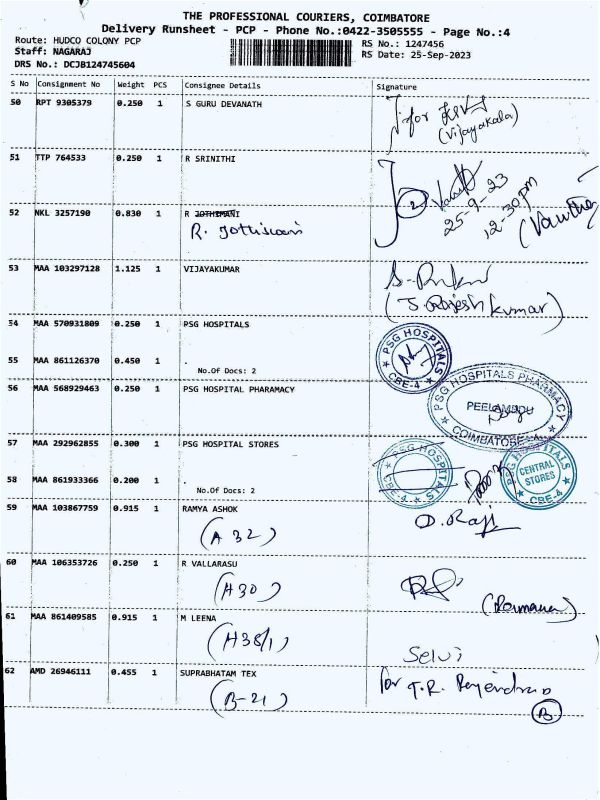 THE PROFESSIONAL COURIERS, COIMBATORE
Delivery Runsheet - PCP - Phone No.:0422-3505555 - Page No.:4
Route: HUDCO COLONY PCP RS No.: 1247456
Staff: NAGARAJ RS Date: 25-Sep-2023
DRS No.: DCJB124745604
S No Consignment No Weight PCS Consignee Details Signature
50 RPT 9305379 0.250 1 S GURU DEVANATH
for
(Vijayakala)
51 TTP 764533 0.250 1 R SRINITHI
2
25-9-23
12-30pm
52 NKL 3257190 0.830 1 R JOTHIMANI
R.
53 MAA 103297128 1.125 1 VIJAYAKUMAR
(J. Rajesh kumar)
54 MAA 570931809 0.250 1 PSG HOSPITALS
PSG HOSPITALS CBE-4
55 MAA 861126370 0.450 1 .
No.Of Docs: 2
56 MAA 568929463 0.250 1 PSG HOSPITAL PHARAMACY
PSG HOSPITALS PHARMACY
PEELAMEDU
COIMBATORE-4
57 MAA 292962855 0.300 1 PSG HOSPITAL STORES
PSG HOSPITALS CBE-4
CENTRAL STORES
CBE-4
58 MAA 861933366 0.200 1 .
No.Of Docs: 2
59 MAA 103867759 0.915 1 RAMYA ASHOK
(A 32) D. Raji
60 MAA 106353726 0.250 1 R VALLARASU
(H30)
61 MAA 861409585 0.915 1 M LEENA
(H38/1) Selvi
62 AMD 26946111 0.455 1 SUPRABHATAM TEX
for T.R.
(B-21)
B